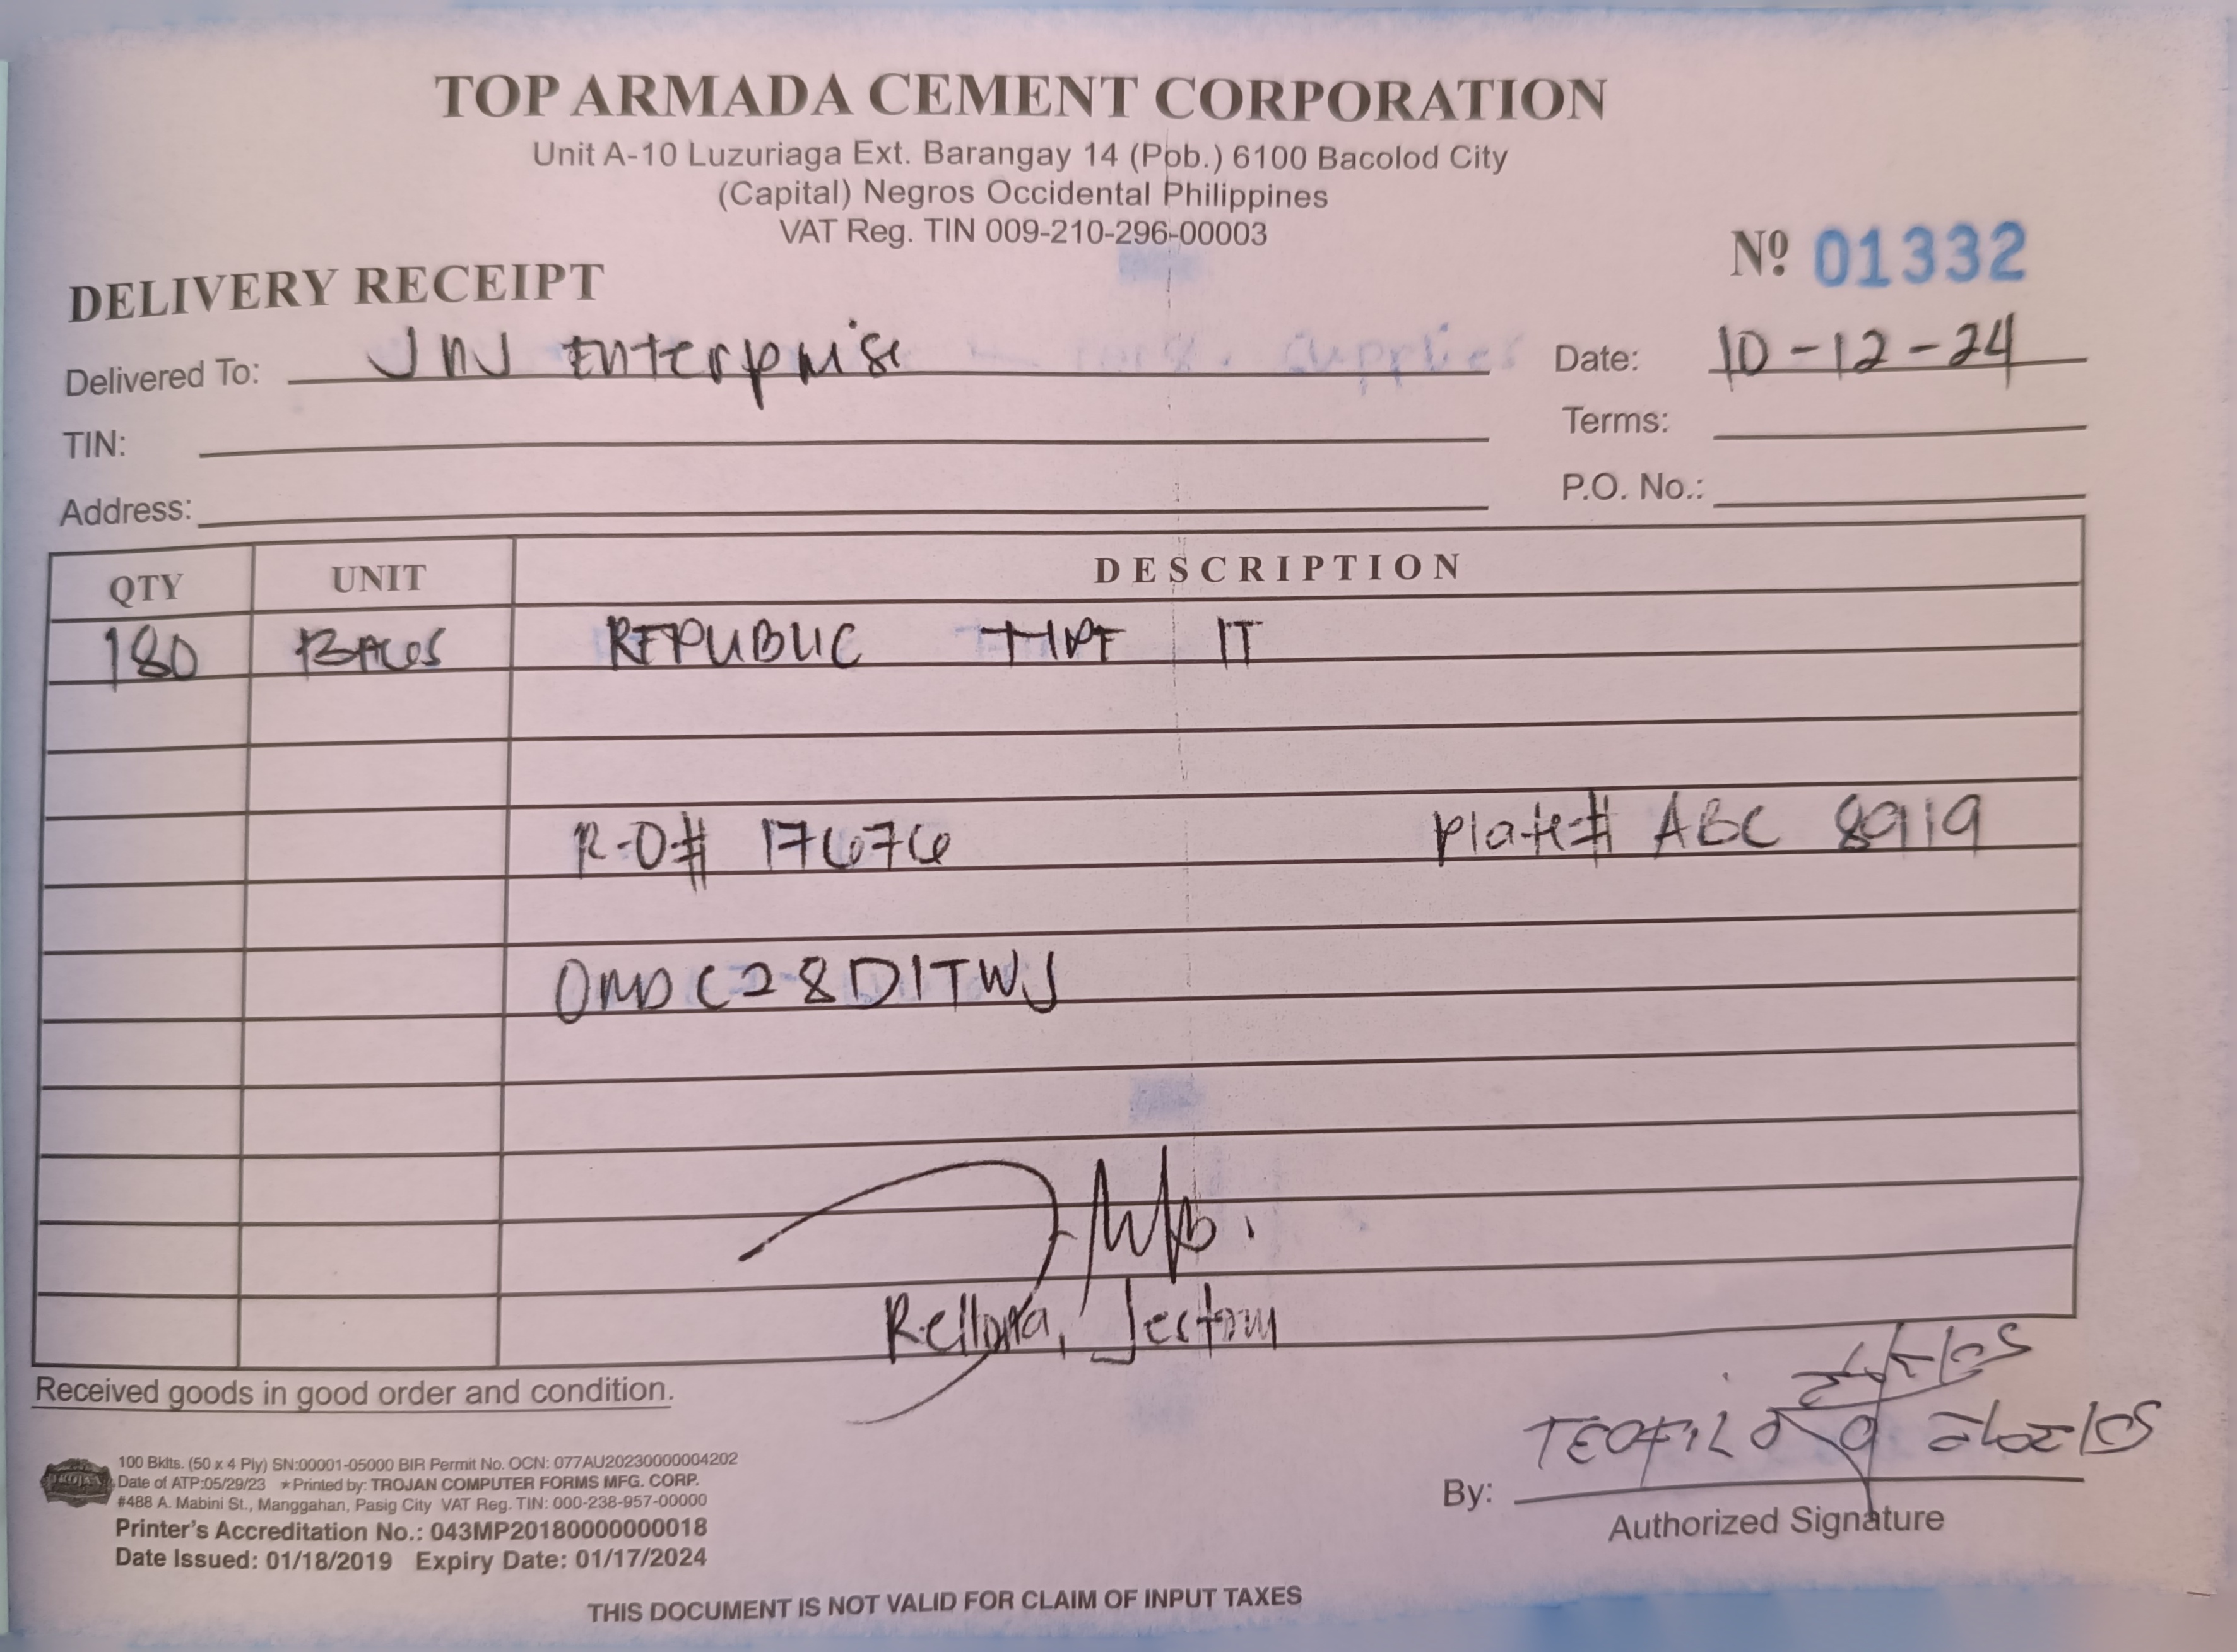 TOP ARMADA CEMENT CORPORATION
Unit A-10 Luzuriaga Ext. Barangay 14 (Pob.) 6100 Bacolod City
(Capital) Negros Occidental Philippines
VAT Reg. TIN 009-210-296-00003
DELIVERY RECEIPT
Nº 01332
Delivered To: JNJ Enterprise
Date: 10-12-24
TIN:
Terms:
Address:
P.O. No.:
QTY UNIT DESCRIPTION
180 BAGS REPUBLIC TYPE IT
R.O# 17676 Plate# ABC 8919
OMDC28D1TWJ
Received goods in good order and condition.
TEOFILO
By:
Authorized Signature
100 Bklts. (50 x 4 Ply) SN:00001-05000 BIR Permit No. OCN: 077AU20230000004202
Date of ATP:05/29/23 ★Printed by: TROJAN COMPUTER FORMS MFG. CORP.
#488 A. Mabini St., Manggahan, Pasig City VAT Reg. TIN: 000-238-957-00000
Printer's Accreditation No.: 043MP20180000000018
Date Issued: 01/18/2019 Expiry Date: 01/17/2024
THIS DOCUMENT IS NOT VALID FOR CLAIM OF INPUT TAXES